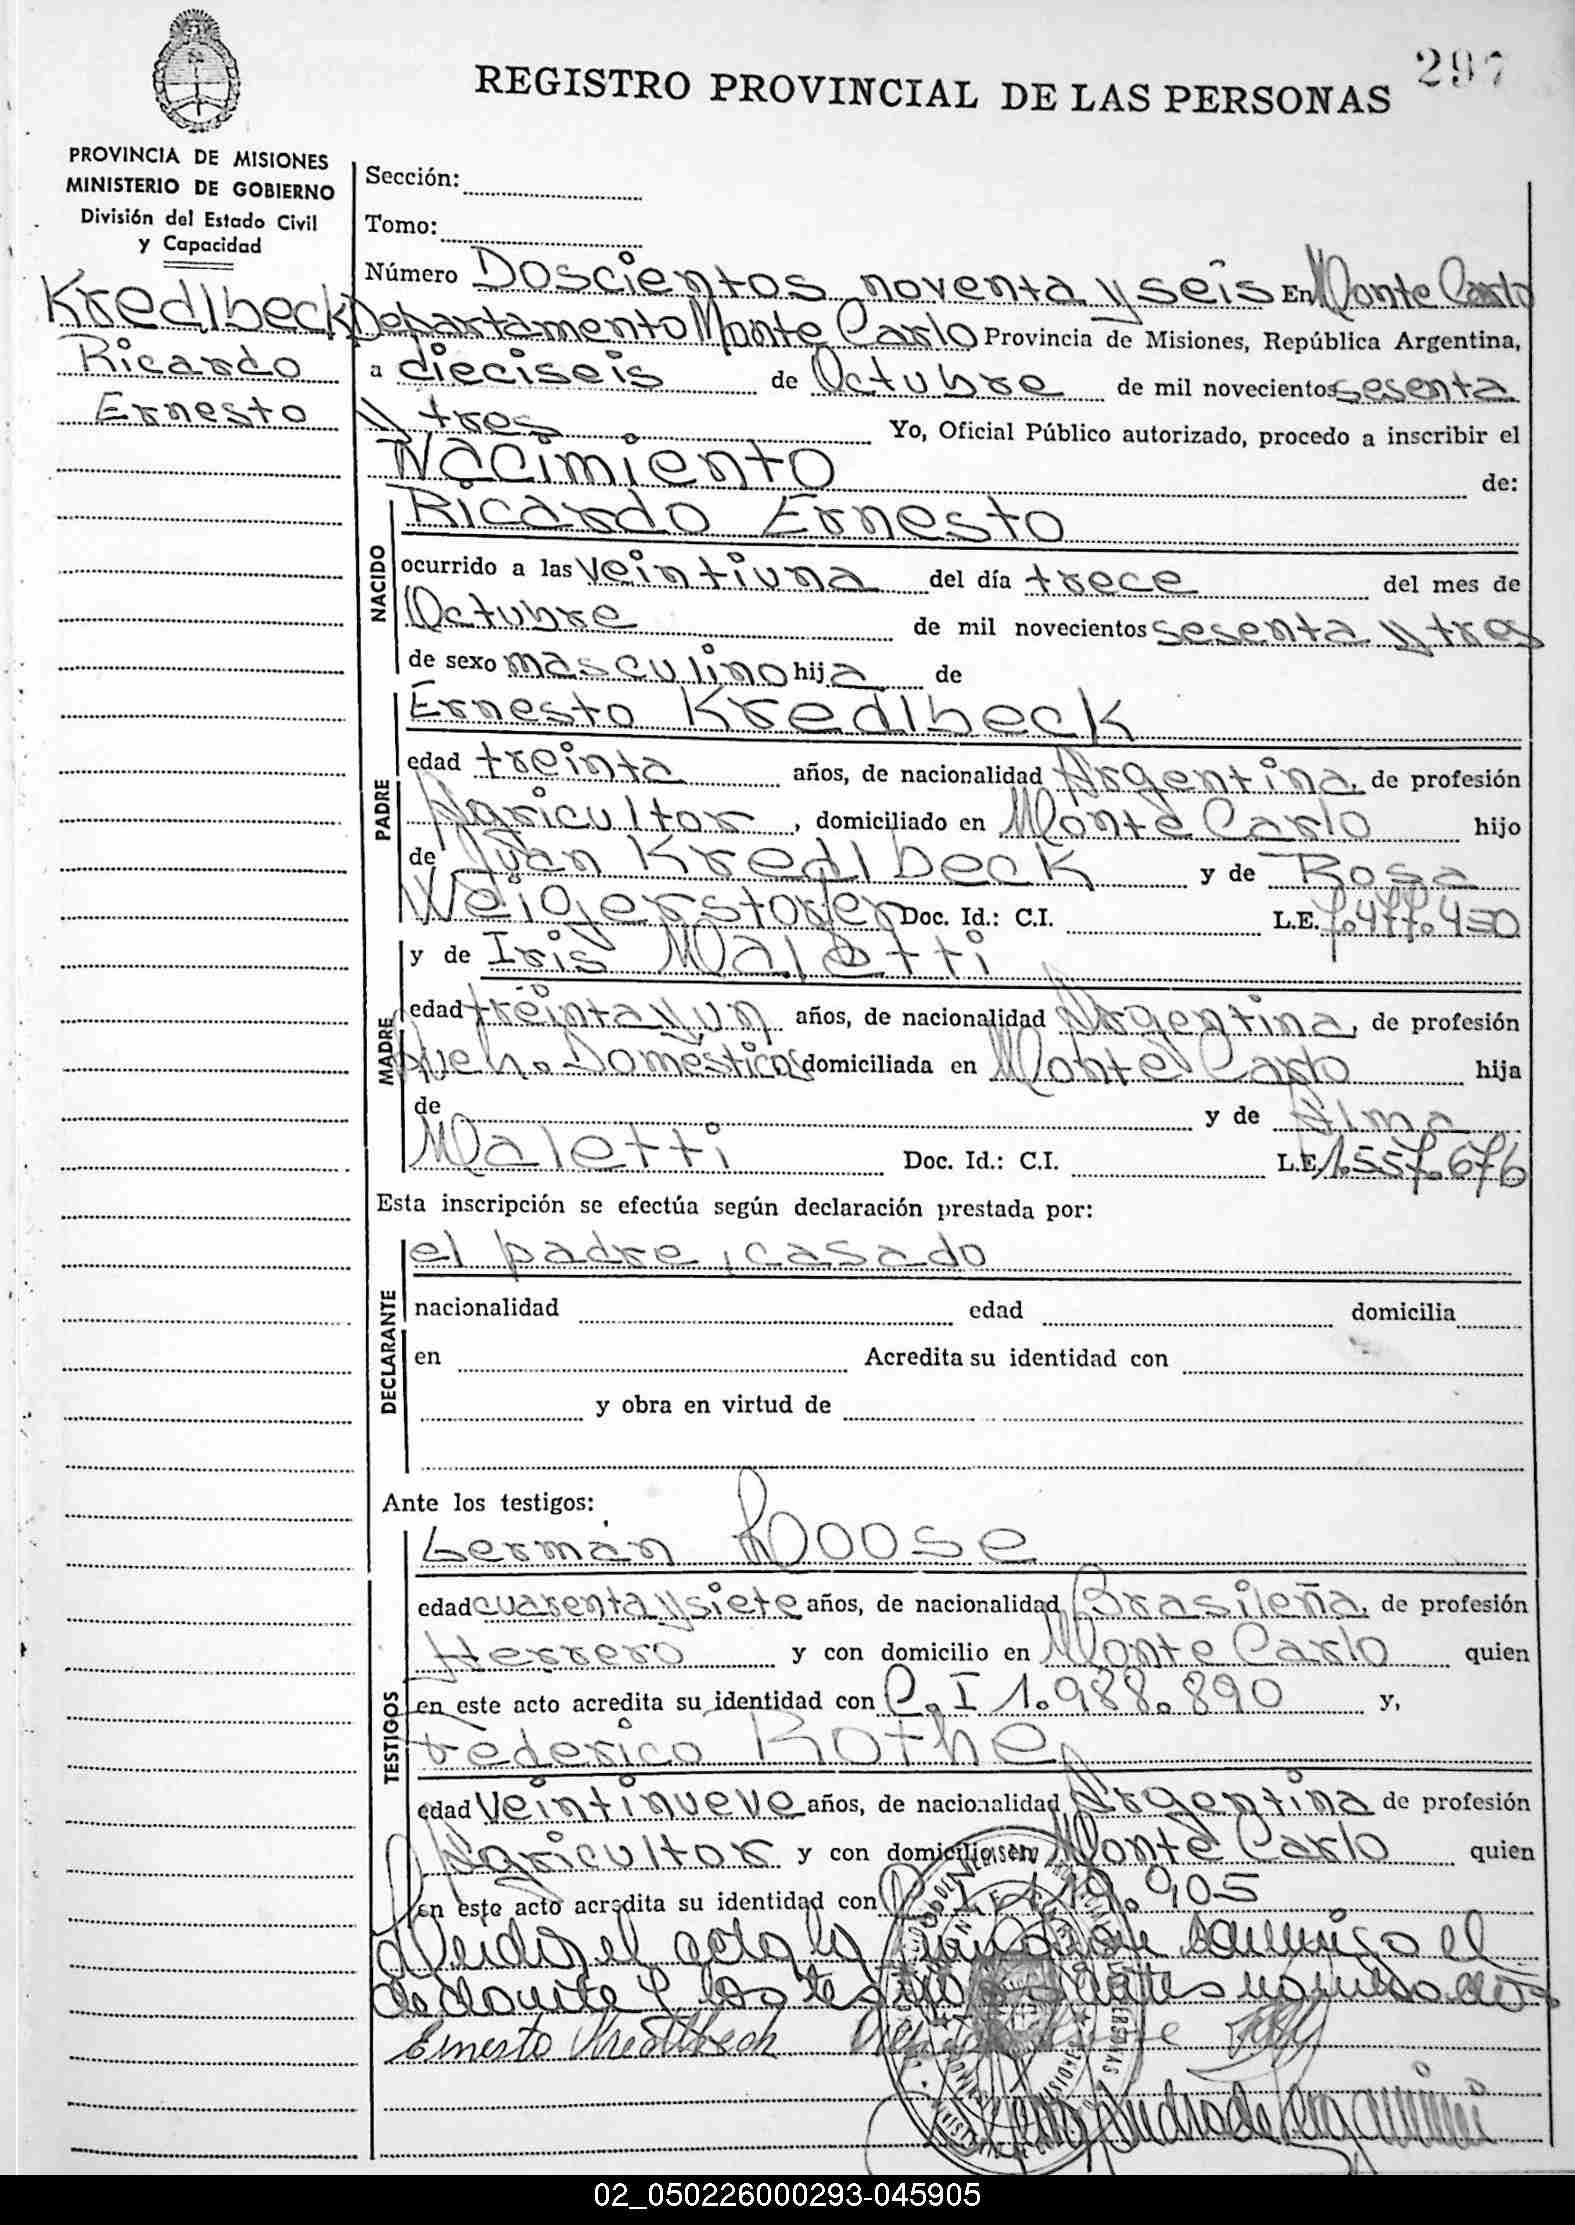 297
REGISTRO PROVINCIAL DE LAS PERSONAS
PROVINCIA DE MISIONES
MINISTERIO DE GOBIERNO
División del Estado Civil
y Capacidad
Kredlbeck
Ricardo
Ernesto
Sección:
Tomo:
Número Doscientos noventa y seis En Monte Carlo
Departamento Monte Carlo Provincia de Misiones, República Argentina,
a dieciseis de Octubre de mil novecientos sesenta
y tres Yo, Oficial Público autorizado, procedo a inscribir el
Nacimiento de:
NACIDO
Ricardo Ernesto
ocurrido a las veintiuna del día trece del mes de
Octubre de mil novecientos sesenta y tres
de sexo masculino hija de
PADRE
Ernesto Kredlbeck
edad treinta años, de nacionalidad Argentina, de profesión
Agricultor, domiciliado en Monte Carlo hijo
de Juan Kredlbeck y de Rosa
Weigerstorfer Doc. Id.: C.I. L.E. 7.477.450
MADRE
y de Iris Maletti
edad treinta y un años, de nacionalidad Argentina, de profesión
Queh. Domésticos domiciliada en Monte Carlo hija
de y de Alma
Maletti Doc. Id.: C.I. L.E. 1.557.676
Esta inscripción se efectúa según declaración prestada por:
DECLARANTE
el padre, casado
nacionalidad edad domicilia
en Acredita su identidad con
y obra en virtud de
Ante los testigos:
TESTIGOS
Germán Doose
edad cuarenta y siete años, de nacionalidad Brasileña, de profesión
Herrero y con domicilio en Monte Carlo quien
en este acto acredita su identidad con C.I 1.988.890 y,
Federico Rothe
edad veintinueve años, de nacionalidad Argentina de profesión
Agricultor y con domicilio en Monte Carlo quien
en este acto acredita su identidad con C.I. 119.905
Leida el acta la conmigo el
declarante y los testigos antes nombrados
Ernesto Kredlbeck
02_050226000293-045905